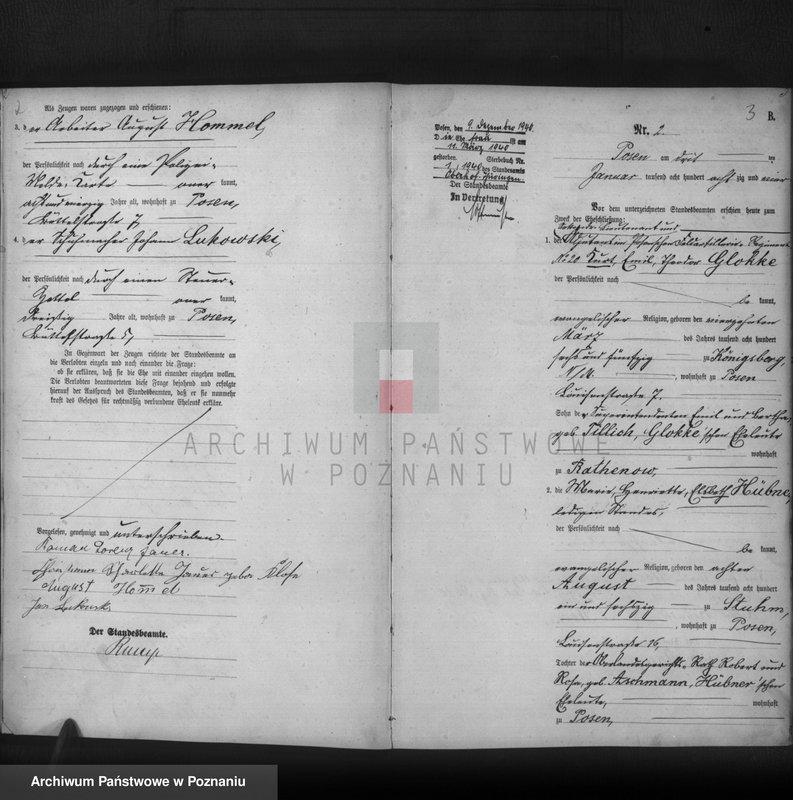 2
Als Zeugen waren zugezogen und erschienen:
3. der Arbeiter August Hommel,
der Persönlichkeit nach durch eine Polizei-
Melde-Karte kannt,
achtundvierzig Jahre alt, wohnhaft zu Posen,
Büttelstraße 7,
4. der Schuhmacher Johann Lukowski,
der Persönlichkeit nach durch einen Steuer-
Zettel kannt,
dreißig Jahre alt, wohnhaft zu Posen,
Büttelstraße 5,
In Gegenwart der Zeugen richtete der Standesbeamte an
die Verlobten einzeln und nach einander die Frage:
ob sie erklären, daß sie die Ehe mit einander eingehen wollen.
Die Verlobten beantworteten diese Frage bejahend und erfolgte
hierauf der Ausspruch des Standesbeamten, daß er sie nunmehr
kraft des Gesetzes für rechtmäßig verbundene Eheleute erkläre.
Vorgelesen, genehmigt und unterschrieben.
Roman Lorenz Jauer.
Jauer geborne Klose
August Homel
Jan
Der Standesbeamte.
3
B.
Posen, den 9. Dezember 1940.
Die Ehefrau ist am
11. März 1940
gestorben. Sterbebuch Nr.
1/1940 des Standesamts
Oberhof, Thüringen
Der Standesbeamte
In Vertretung
Nr. 2
Posen am dritten
Januar tausend acht hundert achtzig und vier
Vor dem unterzeichneten Standesbeamten erschien heute zum
Zweck der Eheschließung:
Seconde-Lieutenant und
1. der Adjutant im Posenschen Feldartillerie-Regiment
No 20 Kurt, Emil, Theodor Glokke
der Persönlichkeit nach
be kannt,
evangelischer Religion, geboren den vierzehnten
März des Jahres tausend acht hundert
sechs und fünfzig zu Königsberg,
N/M. , wohnhaft zu Posen
Louisenstraße 7.
Sohn der Superintendenten Emil und Bertha,
geb. Tillich, Glokke'schen Eheleute
wohnhaft
zu Rathenow,
2. die Marie, Henriette, Elsbeth Hübner,
ledigen Standes,
der Persönlichkeit nach
be kannt,
evangelischer Religion, geboren den achten
August des Jahres tausend acht hundert
ein und sechszig zu Stuhm,
, wohnhaft zu Posen,
Louisenstraße 16,
Tochter der Oberlandesgerichts-Rath Robert und
Rosa, geb. Aschmann, Hübner'schen
Eheleute, wohnhaft
zu Posen,
ARCHIWUM PAŃSTWOWE
W POZNANIU
Archiwum Państwowe w Poznaniu